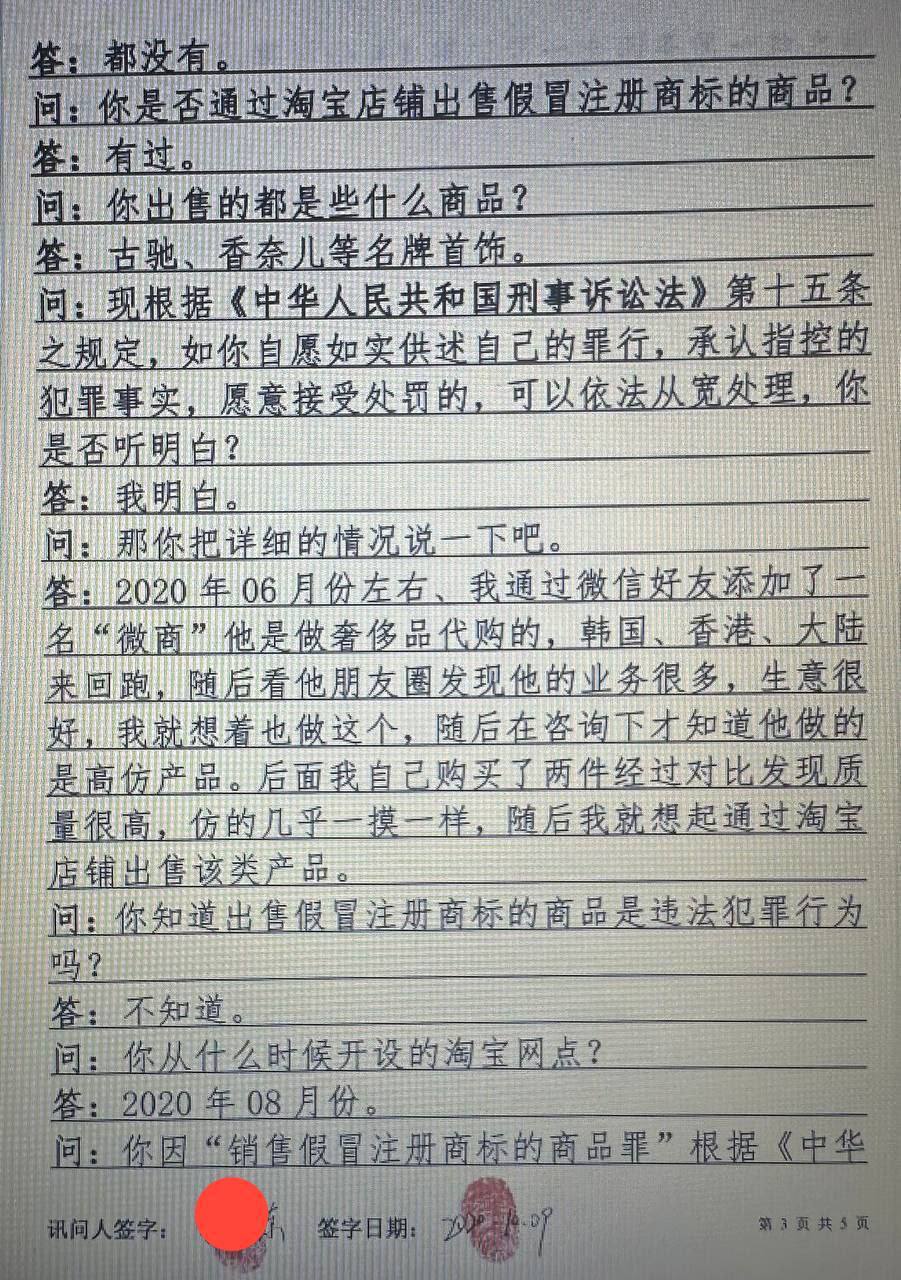 答：都没有。
问：你是否通过淘宝店铺出售假冒注册商标的商品？
答：有过。
问：你出售的都是些什么商品？
答：古驰、香奈儿等名牌首饰。
问：现根据《中华人民共和国刑事诉讼法》第十五条
之规定，如你自愿如实供述自己的罪行，承认指控的
犯罪事实，愿意接受处罚的，可以依法从宽处理，你
是否听明白？
答：我明白。
问：那你把详细的情况说一下吧。
答：2020 年 06 月份左右、我通过微信好友添加了一
名“微商”他是做奢侈品代购的，韩国、香港、大陆
来回跑，随后看他朋友圈发现他的业务很多，生意很
好，我就想着也做这个，随后在咨询下才知道他做的
是高仿产品。后面我自己购买了两件经过对比发现质
量很高，仿的几乎一摸一样，随后我就想起通过淘宝
店铺出售该类产品。
问：你知道出售假冒注册商标的商品是违法犯罪行为
吗？
答：不知道。
问：你从什么时候开设的淘宝网点？
答：2020 年 08 月份。
问：你因“销售假冒注册商标的商品罪”根据《中华
讯问人签字： 签字日期： 2020.10.09 第 3 页 共 5 页